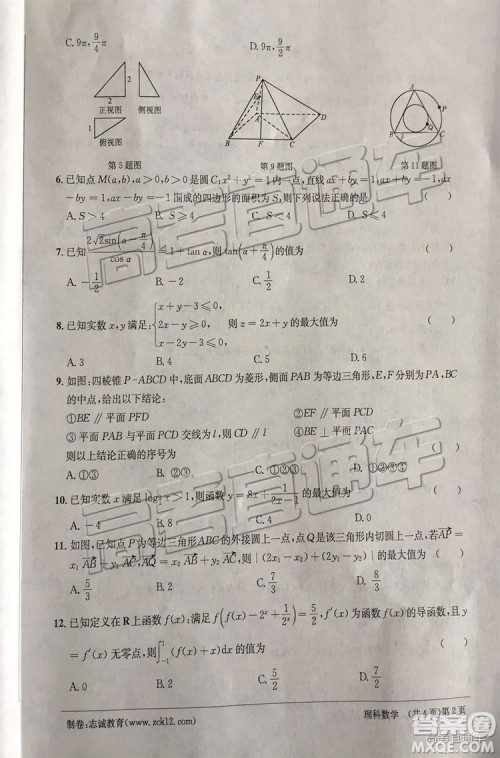 C. 9π, 9/4 π    D. 9π, 9/2 π
2
2
正视图    侧视图
1
俯视图
P
E
A
D
B
F
C
A
P
Q
B
C
第5题图    第9题图    第11题图
6. 已知点 M(a,b),a>0,b>0 是圆 C:x²+y²=1 内一点,直线 ax+by=1,ax+by=-1,ax-by=1,ax-by=-1 围成的四边形的面积为 S,则下列说法正确的是 (    )
A. S>4    B. S≥4    C. S<4    D. S≤4
7. 已知 2√2sin(α-π/4)/cos α=1+tan α,则 tan(α+π/4) 的值为 (    )
A. -1/2    B. -2    C. 1/2    D. 2
8. 已知实数 x,y 满足: {x+y-3≤0, 2x-y≥0, x-2y-3≤0, 则 z=2x+y 的最大值为 (    )
A. 3    B. 4    C. 5    D. 6
9. 如图:四棱锥 P-ABCD 中,底面 ABCD 为菱形,侧面 PAB 为等边三角形,E,F 分别为 PA,BC
的中点,给出以下结论:
①BE // 平面 PFD    ②EF // 平面 PCD
③平面 PAB 与平面 PCD 交线为 l,则 CD // l    ④BE ⊥ 平面 PAD
则以上结论正确的序号为 (    )
A. ①③    B. ②③    C. ①②③    D. ②③④
10. 已知实数 x 满足
的最大值为 (    )
A. -4    B. 8    C. 4    D. 0
11. 如图,已知点 P 为等边三角形 ABC 的外接圆上一点,点 Q 是该三角形内切圆上一点,若 AP
= x₁ AB + y₁ AC, AQ = x₂ AB + y₂ AC,则 |(2x₁-x₂)+(2y₁-y₂)| 的最大值为 (    )
A. 5/3    B. 2    C. 7/3    D. 8/3
12. 已知定义在 R 上函数 f(x):满足 f(f(x)-2ˣ+1/2ˣ)=5/2,f'(x) 为函数 f(x) 的导函数,且 y
= f'(x) 无零点,则 ∫₋₁¹ (f(x)+x)dx 的值为 (    )
A. 0    B. 2    C.    D. 4
制卷:志诚教育(www.zck12.com)    理科数学    (共4页)第2页
高考直通车
高考直通车
高考直通车
作业帮